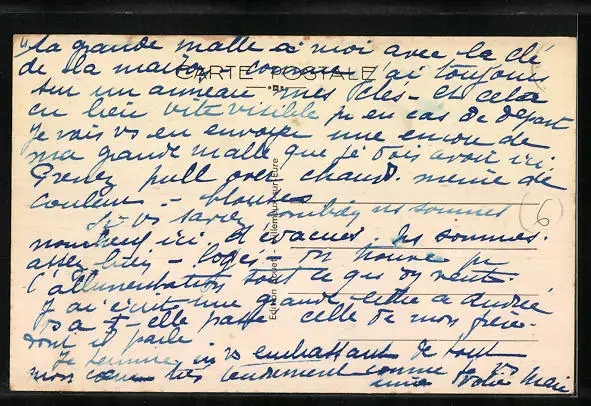 "La grande malle à moi avec la clé
de la maison comme j'ai toujours
CARTE POSTALE
sur un anneau mes clés - et cela
en lieu vite visible pr en cas de départ
Je vais vs en envoyer une encore de
ma grande malle que je dois avoir ici.
Prenez pull over chaud. même de
couleur - blouses
Si vs saviez combien ns sommes
nombreux ici. d'évacués. Ns sommes.
assez bien - logés on trouve pr
l'alimentation tout ce qu'on veut.
J'ai écrit une grande lettre à Andrée
va t-elle passer celle de mon frère.
dont il parle
Je termine en vs embrassant de tout
mon cœur très tendrement comme je vs
aime Votre Mari
Edition Rouet - Villemeux-sur-Eure
6